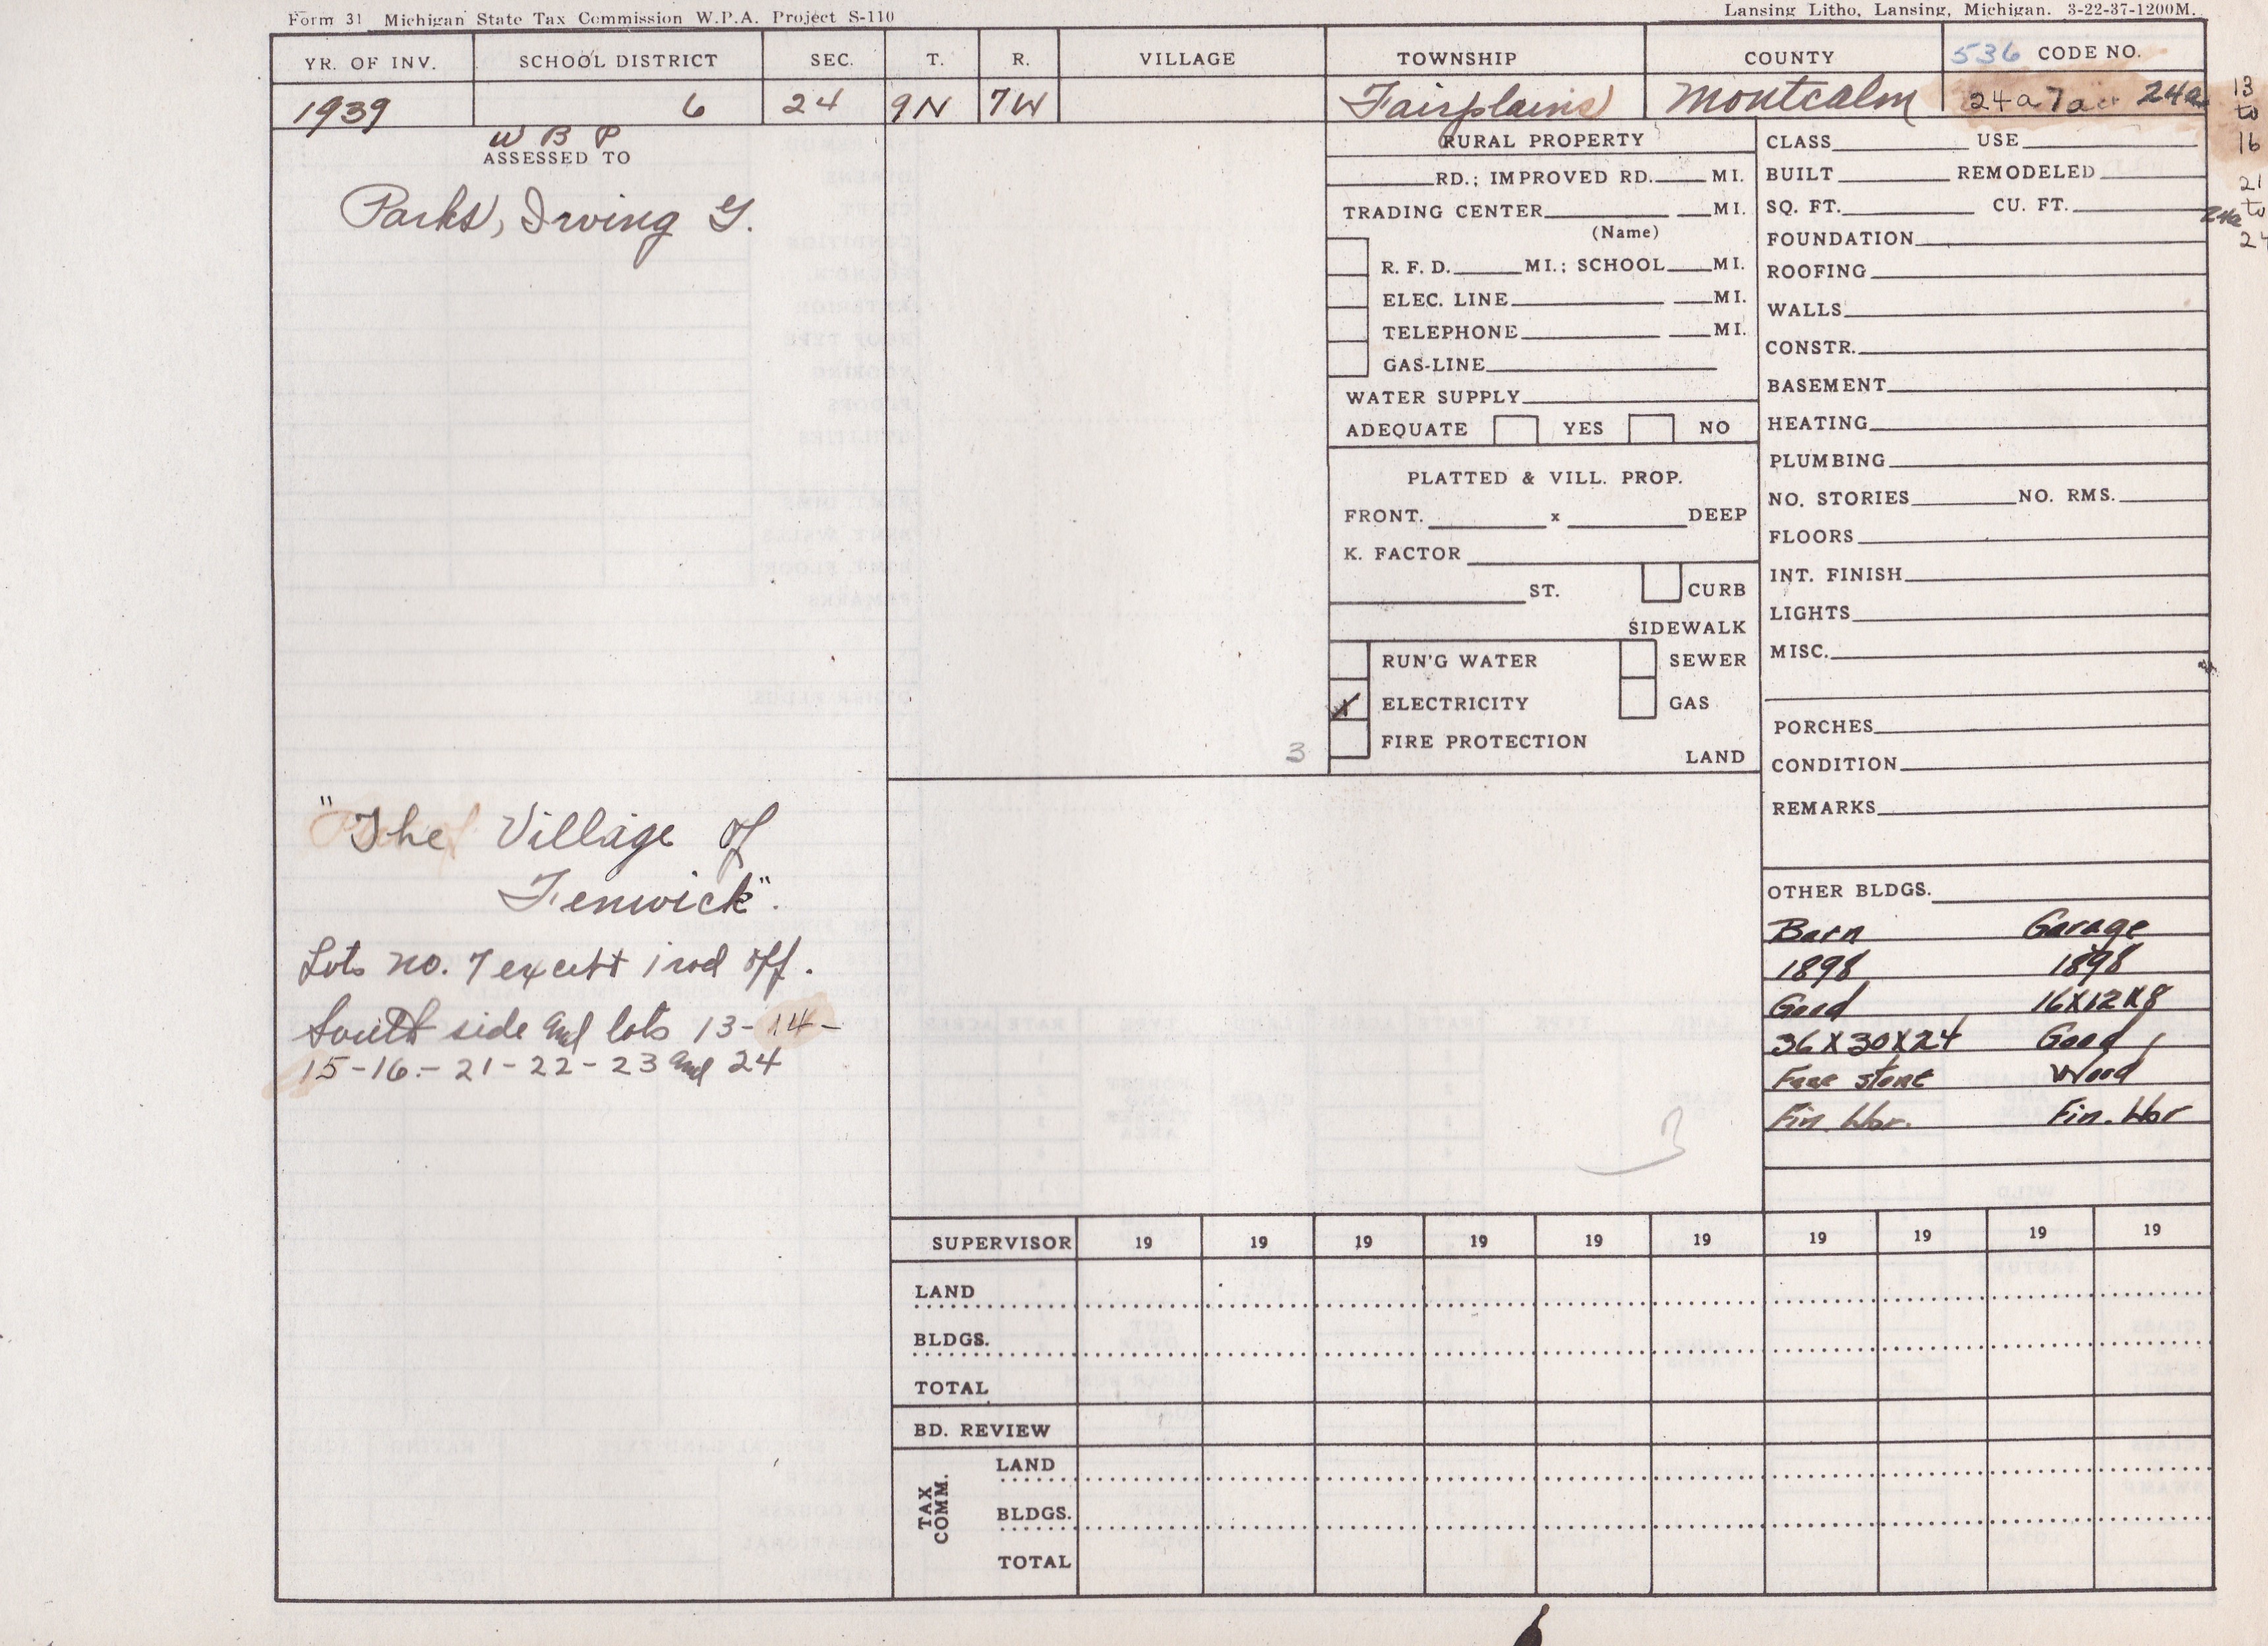 Form 31 Michigan State Tax Commission W.P.A. Project S-110
Lansing Litho, Lansing, Michigan. 3-22-37-1200M.
YR. OF INV. SCHOOL DISTRICT SEC. T. R. VILLAGE TOWNSHIP COUNTY 536 CODE NO.
1939 6 24 9N 7W Fairplains Montcalm 24a7a 24a
13
to
16
21
24a to
24
W B P
ASSESSED TO
Parks, Irving G.
"The Village of
Fenwick".
Lots no. 7 except 1 rod off.
South side and lots 13-14-
15-16-21-22-23 and 24
RURAL PROPERTY
RD.; IMPROVED RD. MI.
TRADING CENTER MI.
(Name)
R. F. D. MI.; SCHOOL MI.
ELEC. LINE MI.
TELEPHONE MI.
GAS-LINE
WATER SUPPLY
ADEQUATE YES NO
PLATTED & VILL. PROP.
FRONT. x DEEP
K. FACTOR
ST. CURB
SIDEWALK
RUN'G WATER SEWER
ELECTRICITY GAS
FIRE PROTECTION
LAND
3
CLASS USE
BUILT REMODELED
SQ. FT. CU. FT.
FOUNDATION
ROOFING
WALLS
CONSTR.
BASEMENT
HEATING
PLUMBING
NO. STORIES NO. RMS.
FLOORS
INT. FINISH
LIGHTS
MISC.
PORCHES
CONDITION
REMARKS
OTHER BLDGS.
Barn Garage
1898 1898
Good 16X12X8
36X30X24 Good
stone Wood
Fin. Wor. Fin. Wor
3
SUPERVISOR 19 19 19 19 19 19 19 19 19 19
LAND
BLDGS.
TOTAL
BD. REVIEW
TAX COMM.
LAND
BLDGS.
TOTAL